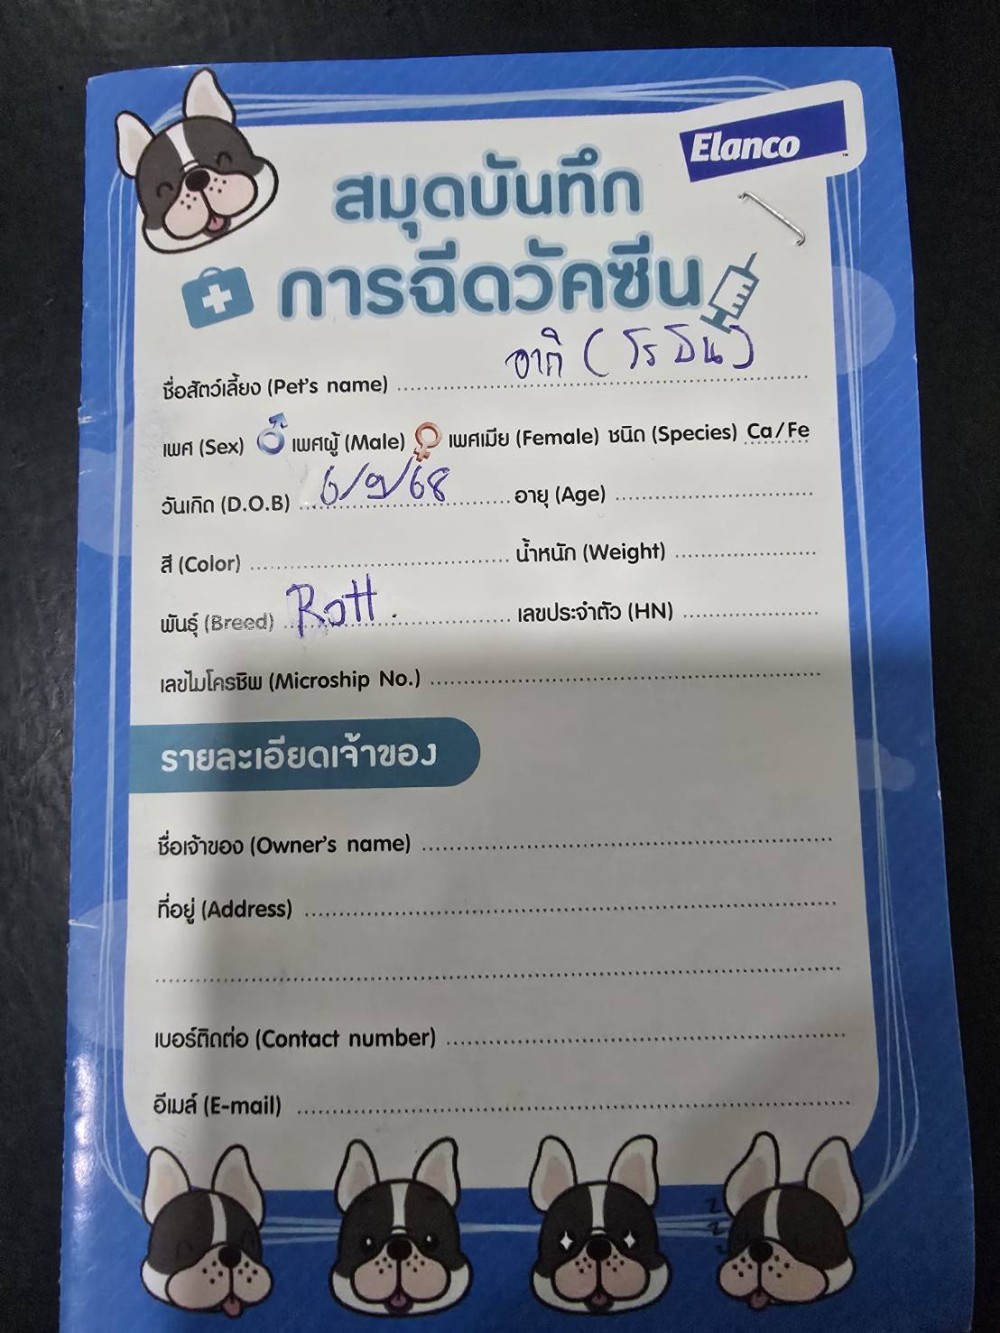 Elanco
สมุดบันทึก
การฉีดวัคซีน
ชื่อสัตว์เลี้ยง (Pet's name) อากิ (โรบิน)
เพศ (Sex) เพศผู้ (Male) เพศเมีย (Female) ชนิด (Species) Ca/Fe
วันเกิด (D.O.B) 6/9/68 อายุ (Age)
สี (Color) น้ำหนัก (Weight)
พันธุ์ (Breed) Rott. เลขประจำตัว (HN)
เลขไมโครชิพ (Microship No.)
รายละเอียดเจ้าของ
ชื่อเจ้าของ (Owner's name)
ที่อยู่ (Address)
เบอร์ติดต่อ (Contact number)
อีเมล์ (E-mail)
z
z
z